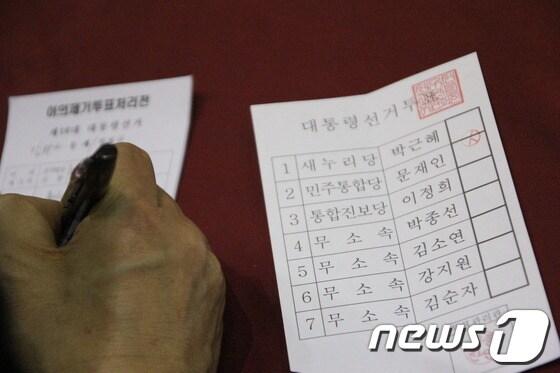 이의제기투표처리전
제18대 대통령선거
대통령선거투
1 새누리당 박근혜
2 민주통합당 문재인
3 통합진보당 이정희
4 무소속 박종선
5 무소속 김소연
6 무소속 강지원
7 무소속 김순자
news1